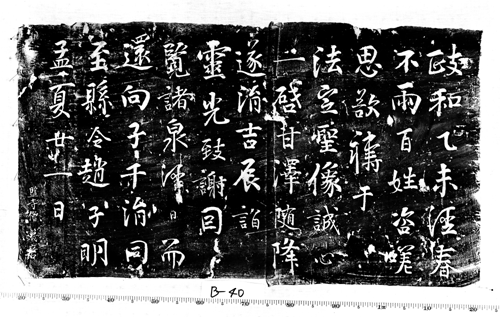 政和乙未經春
不雨百姓咨嗟
思欲禱于
法定聖像誠心
一啓甘澤隨降
遂涓吉辰詣
靈光致謝回
覽諸泉清日而
還向子千洵同
至縣令趙子明
孟夏廿一日
B-40